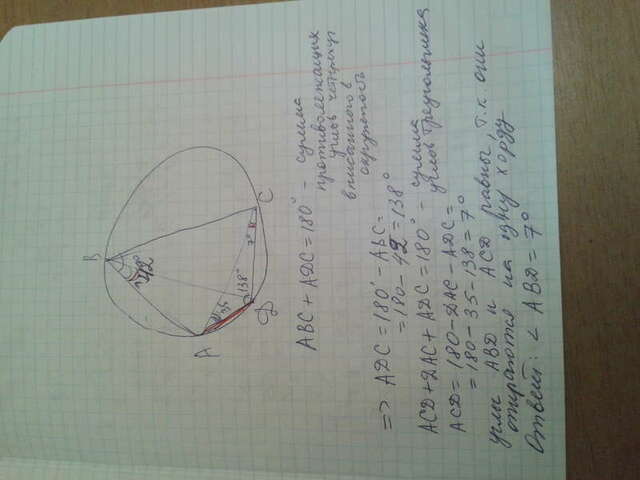 B
42°
A
35
138°
D
7°
C
ABC + ADC = 180° - сумма
противолежащих
углов четыреху
вписанного в
окружность
=> ADC = 180° - ABC =
= 180 - 42 = 138°
ACD + DAC + ADC = 180° - сумма
углов треугольника
ACD = 180 - DAC - ADC =
= 180 - 35 - 138 = 7°
углы ABD и ACD равны, т.к. они
опираются на одну хорду
Ответ: < ABD = 7°